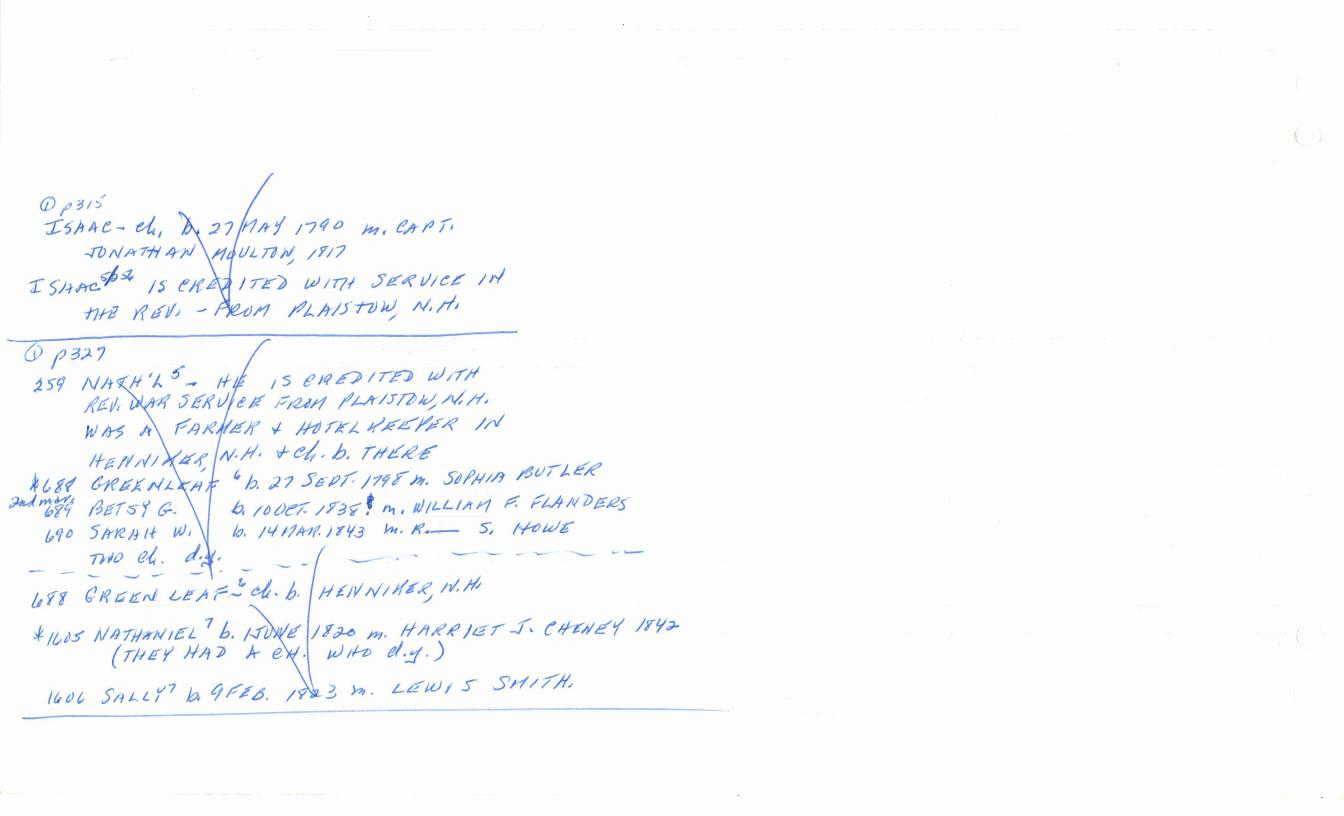 ① p315
ISAAC - ch. b. 27 MAY 1790 m. CAPT.
JONATHAN MOULTON, 1817
ISAAC IS CREDITED WITH SERVICE IN
THE REV. - FROM PLAISTOW, N.H.
① p327
259 NATH'L 5 - HE IS CREDITED WITH
REV. WAR SERVICE FROM PLAISTOW, N.H.
WAS A FARMER & HOTELKEEPER IN
HENNIKER, N.H. & ch. b. THERE
*688 GREENLEAF 6 b. 27 SEPT. 1798 m. SOPHIA BUTLER
2nd mar.
689 BETSY G. b. 10 OCT. 1838! m. WILLIAM F. FLANDERS
690 SARAH W. b. 14 MAR. 1843 m. R— S. HOWE
TWO ch. d.y.
688 GREENLEAF 6 - ch. b. HENNIKER, N.H.
*1605 NATHANIEL 7 b. 1 JUNE 1820 m. HARRIET J. CHENEY 1842
(THEY HAD A CH. WHO d.y.)
1606 SALLY 7 b. 9 FEB. 1823 m. LEWIS SMITH.